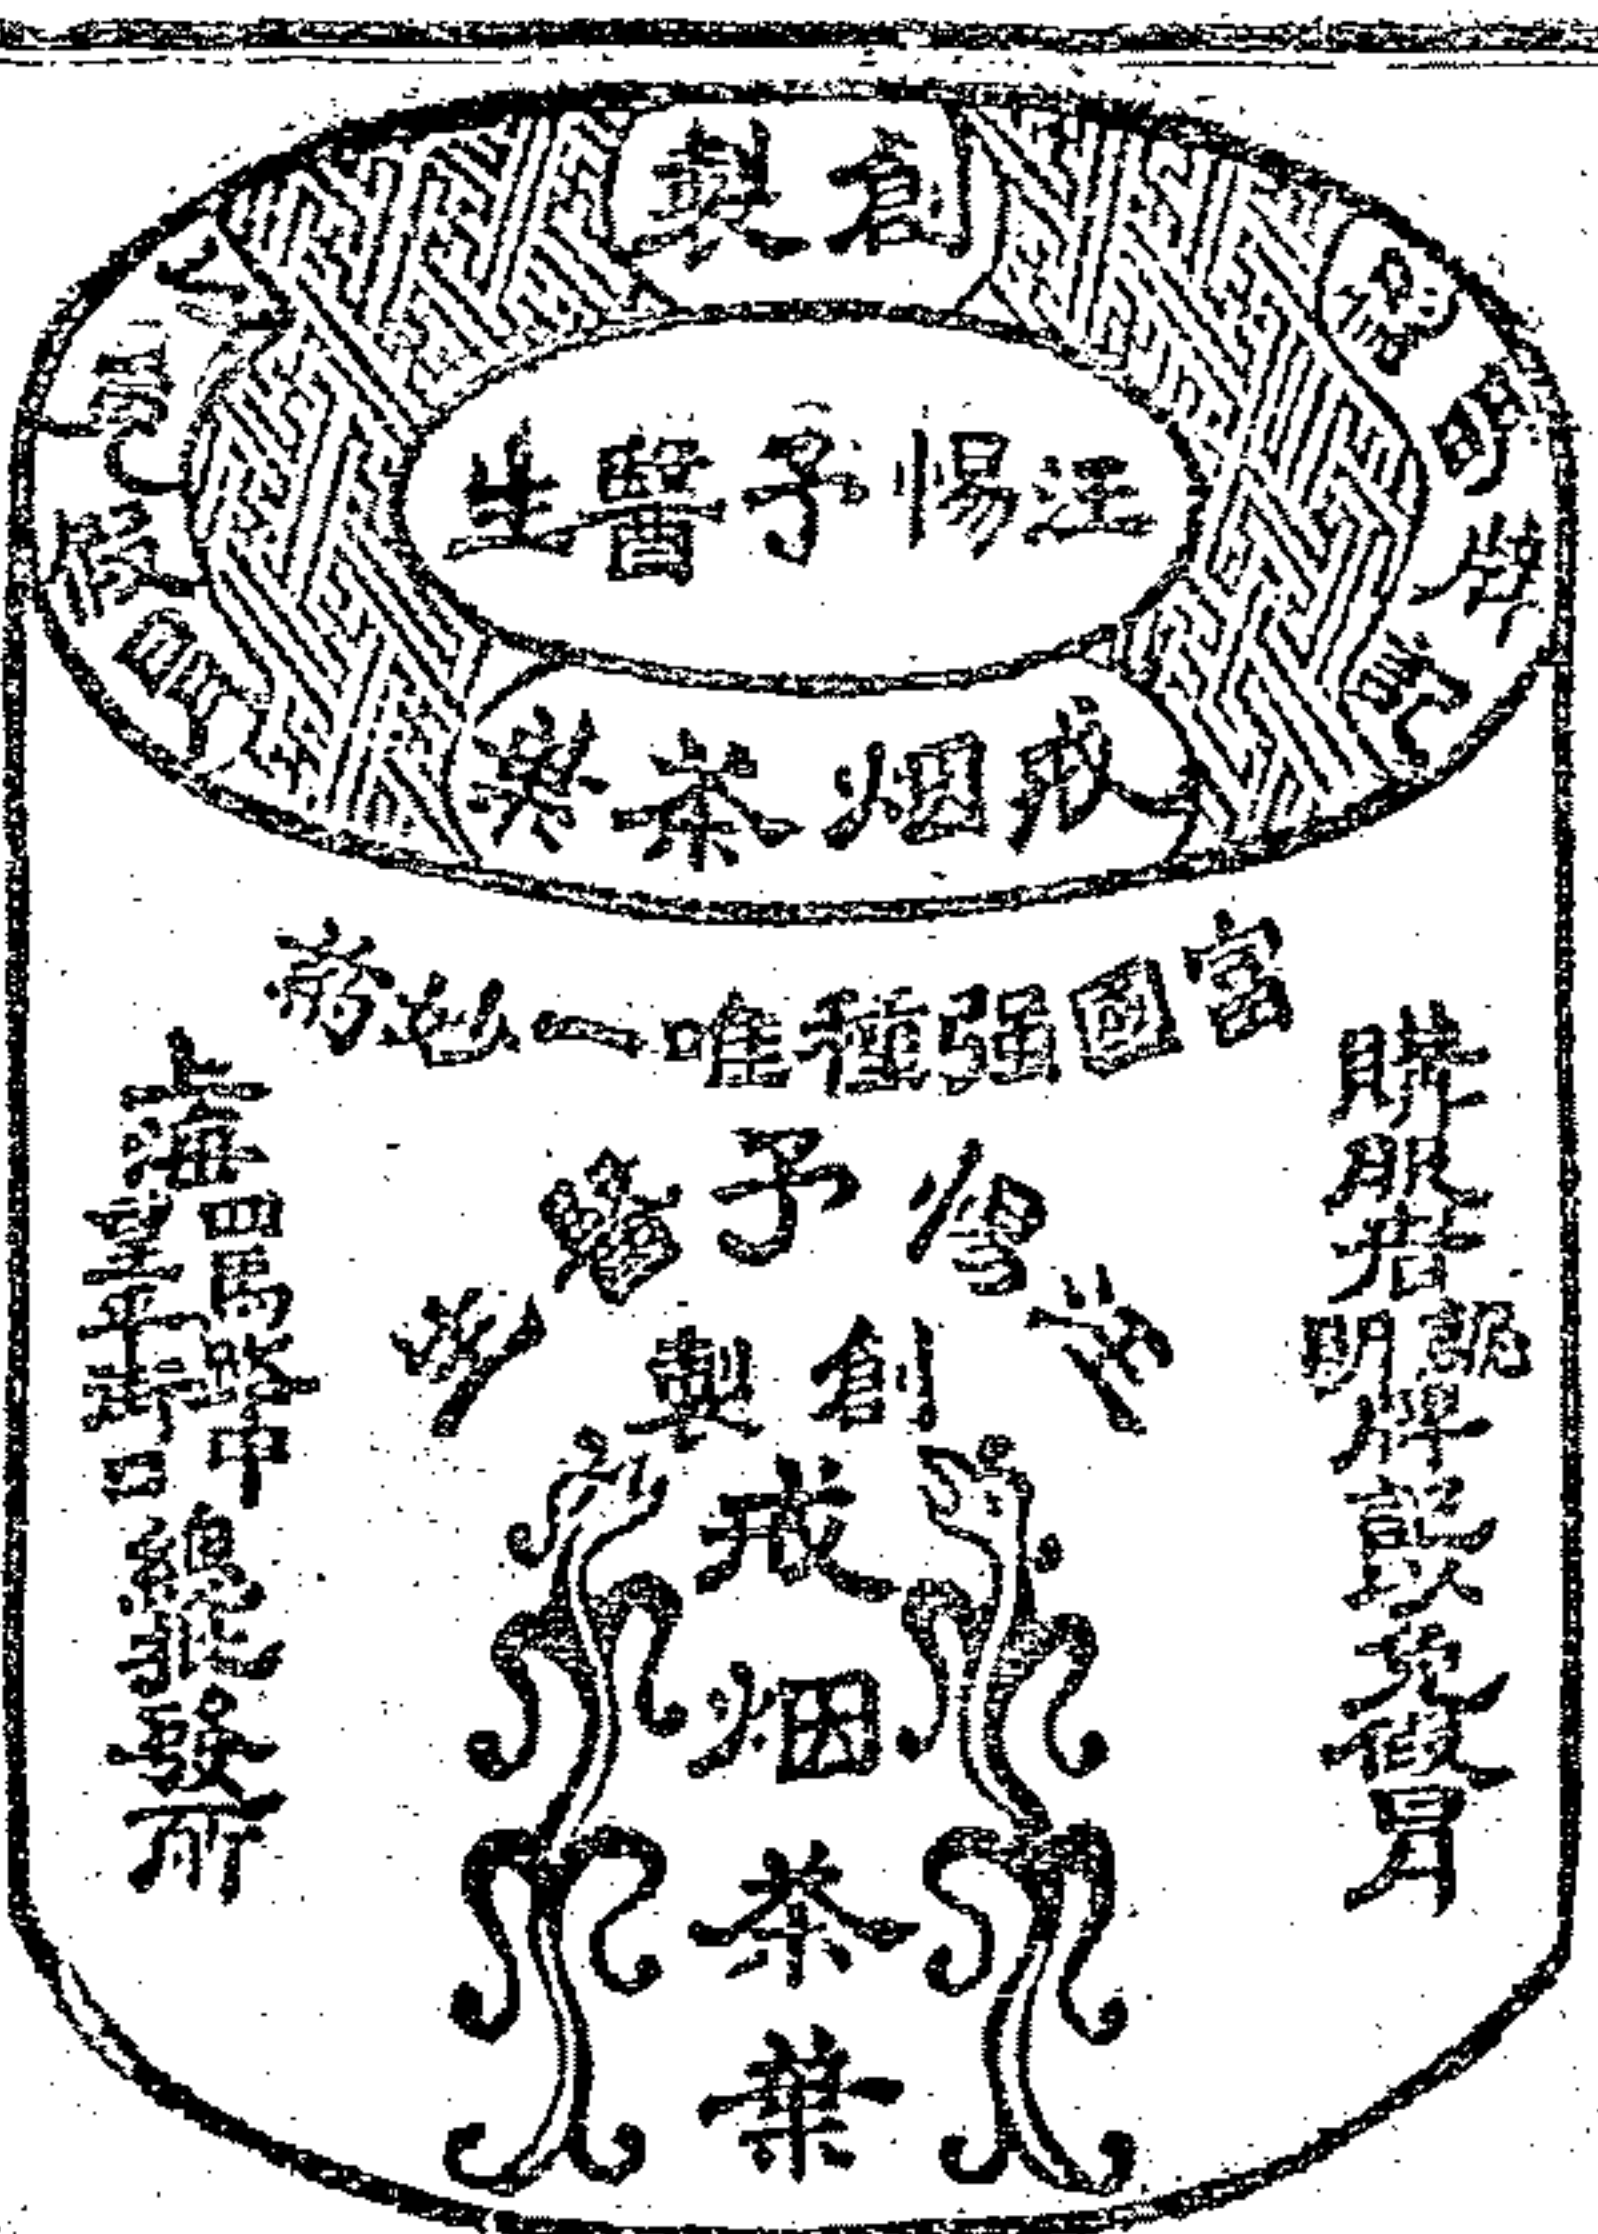 創製
認明牌記
以免假冒
汪惕予醫生
戒烟茶葉
富國强種唯一妙劑
購服者認明牌記以免假冒
汪惕予醫生
創製
戒烟茶葉
上海四馬路中望平街口總批發所